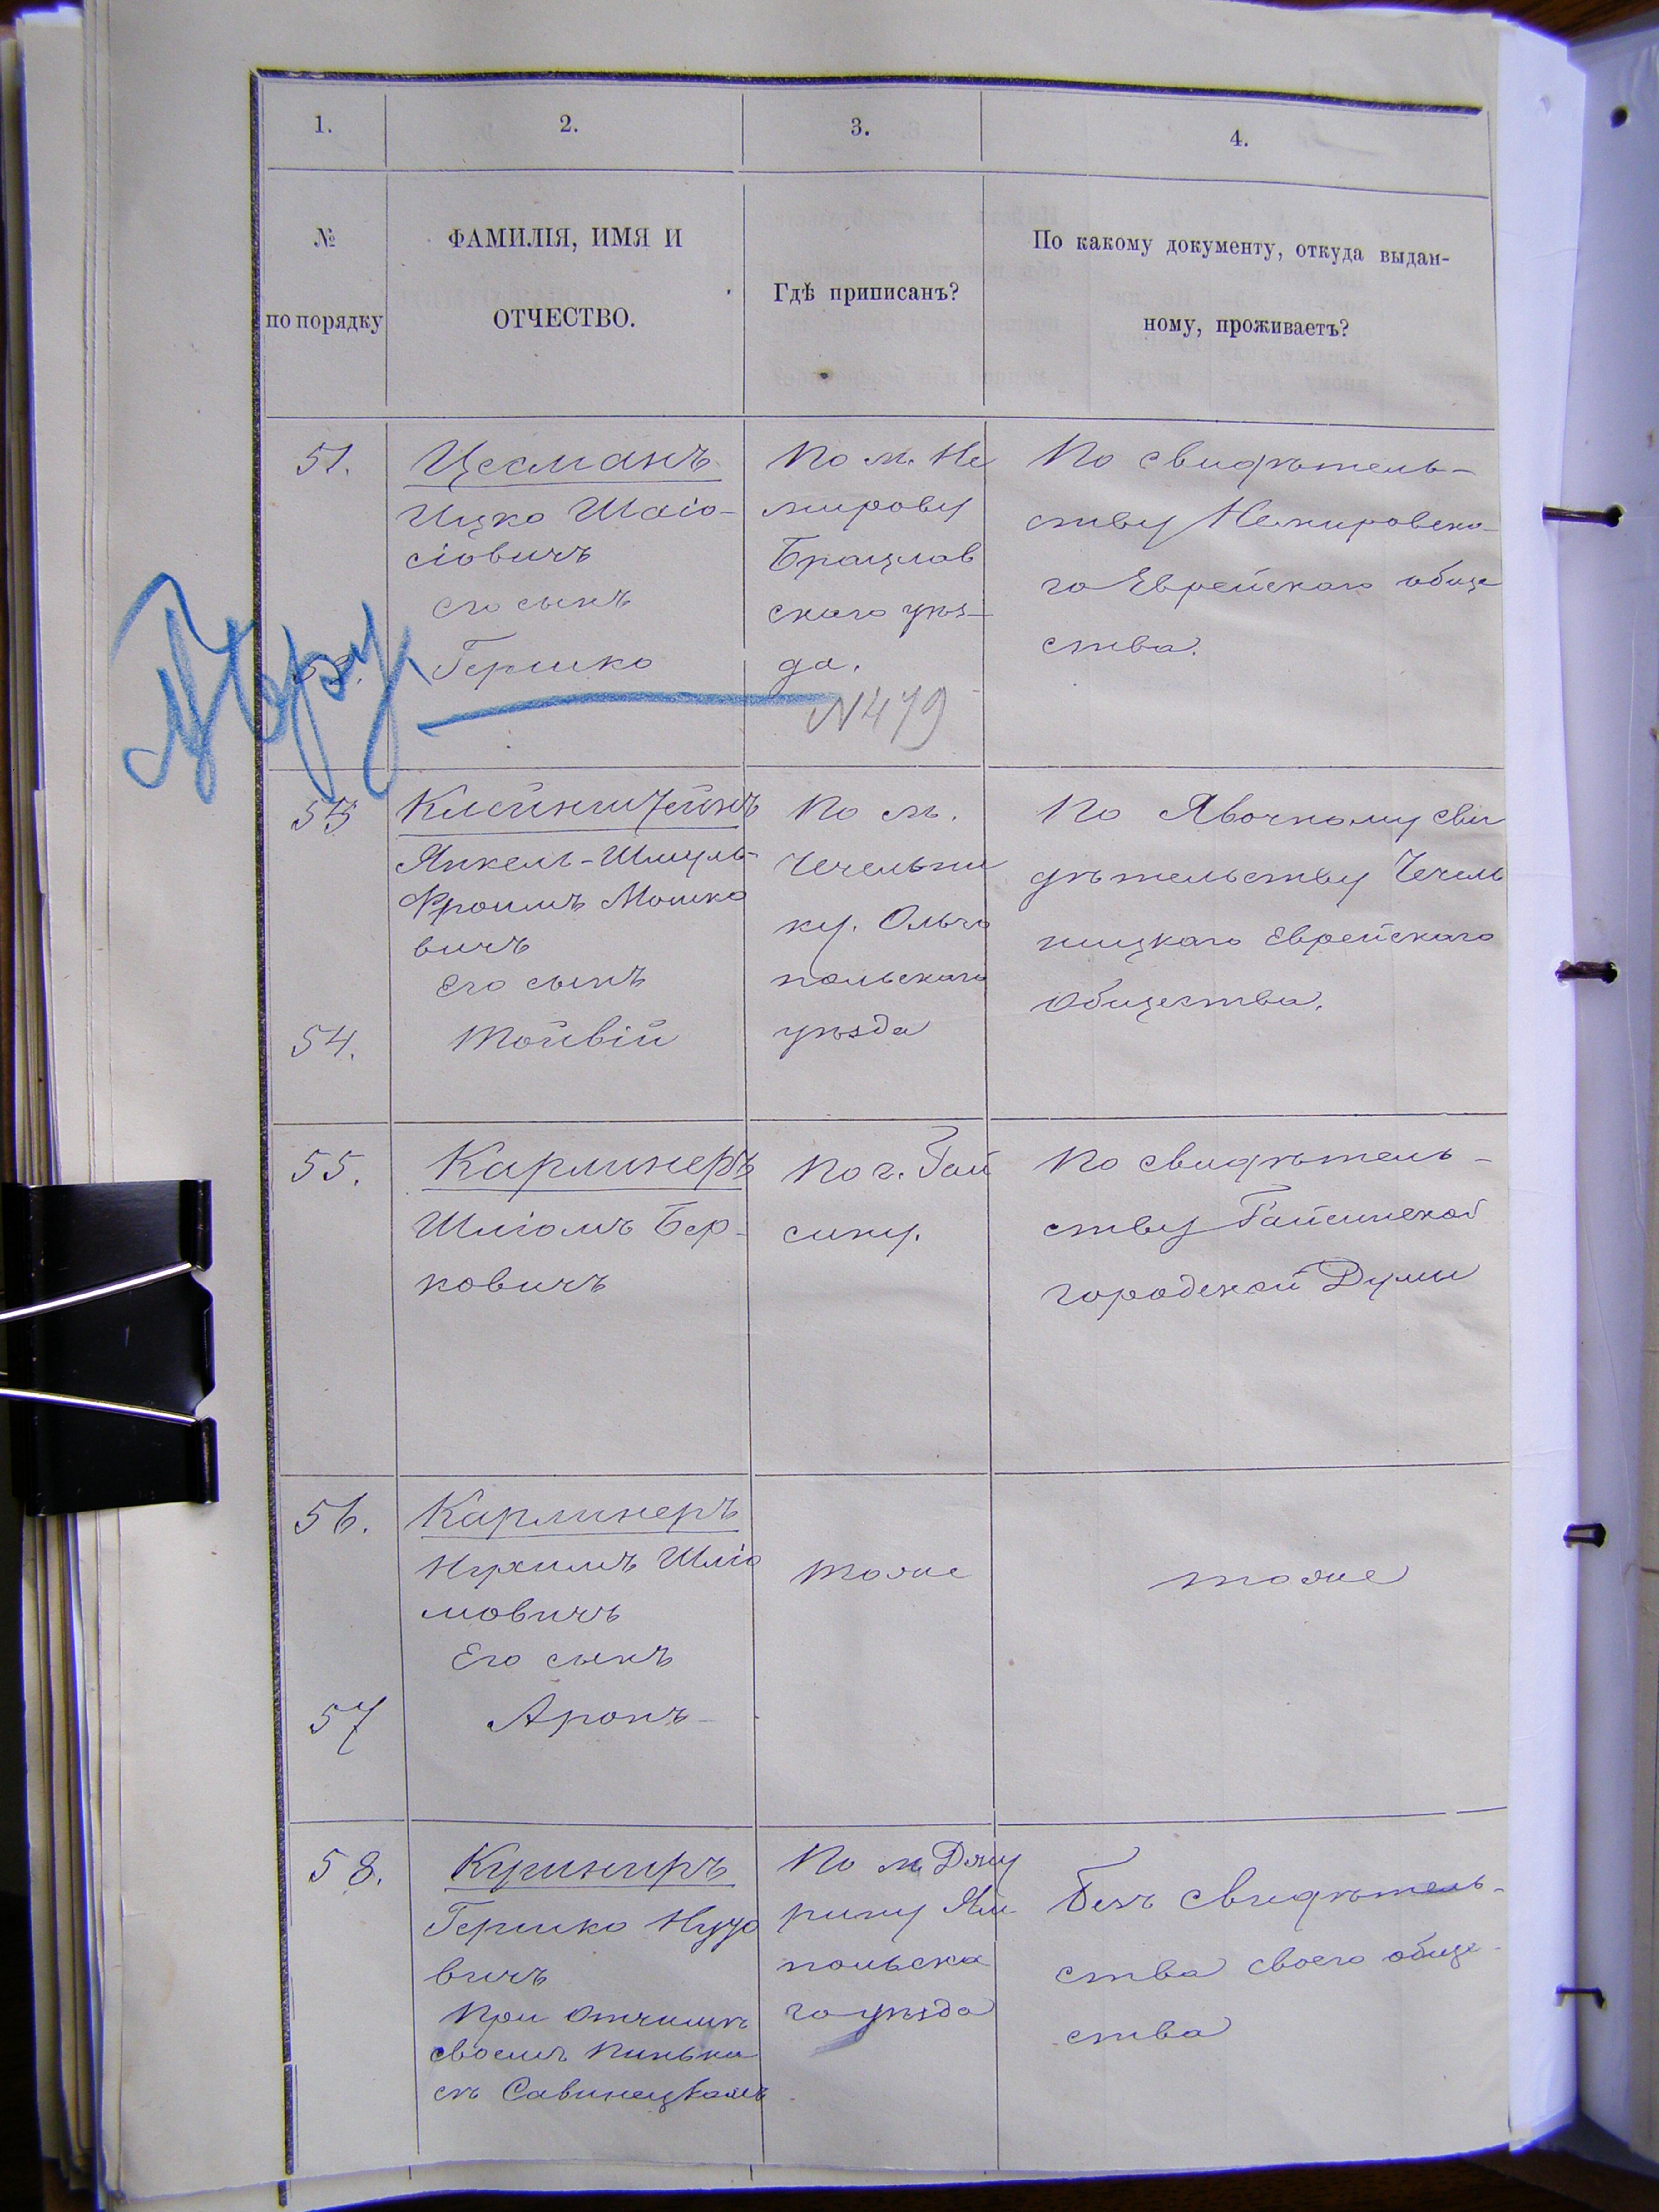 1.
2.
3.
4.
№
по порядку
ФАМИЛІЯ, ИМЯ И
ОТЧЕСТВО.
Гдѣ приписанъ?
По какому документу, откуда выдан-
ному, проживаетъ?
51.
Цесманъ
Ицко Шаіо-
сіовичъ
его сынъ
52. Гершко
По м. Не
мирову
Брацлав
скаго уѣз-
да.
N 479
По свидѣтель-
ству Немировска
го Еврейскаго обще
ства.
53
Клейнштейнъ
Янкель-Шмуль-
Фроимъ Мошко
вичъ
его сынъ
54. Тойвій
По м.
Чечельни
ку. Ольго
польскаго
уѣзда
По Явочному сви
дѣтельству Чечель
ницкаго Еврейскаго
общества.
55.
Карлинеръ
Шліомъ Бер-
ковичъ
По г. Гай
сину.
По свидѣтель-
ству Гайсинской
городской Думы
56.
Карлинеръ
Нухимъ Шліо
мовичъ
Его сынъ
57 Аронъ
тоже
тоже
58.
Кушниръ
Гершко Нухо
вичъ
при отчимѣ
своемъ Пинька
сѣ Савинецкомъ
По м. Джу
рину Ям-
польска
го уѣзда
Безъ свидѣтель-
ства своего обще-
ства